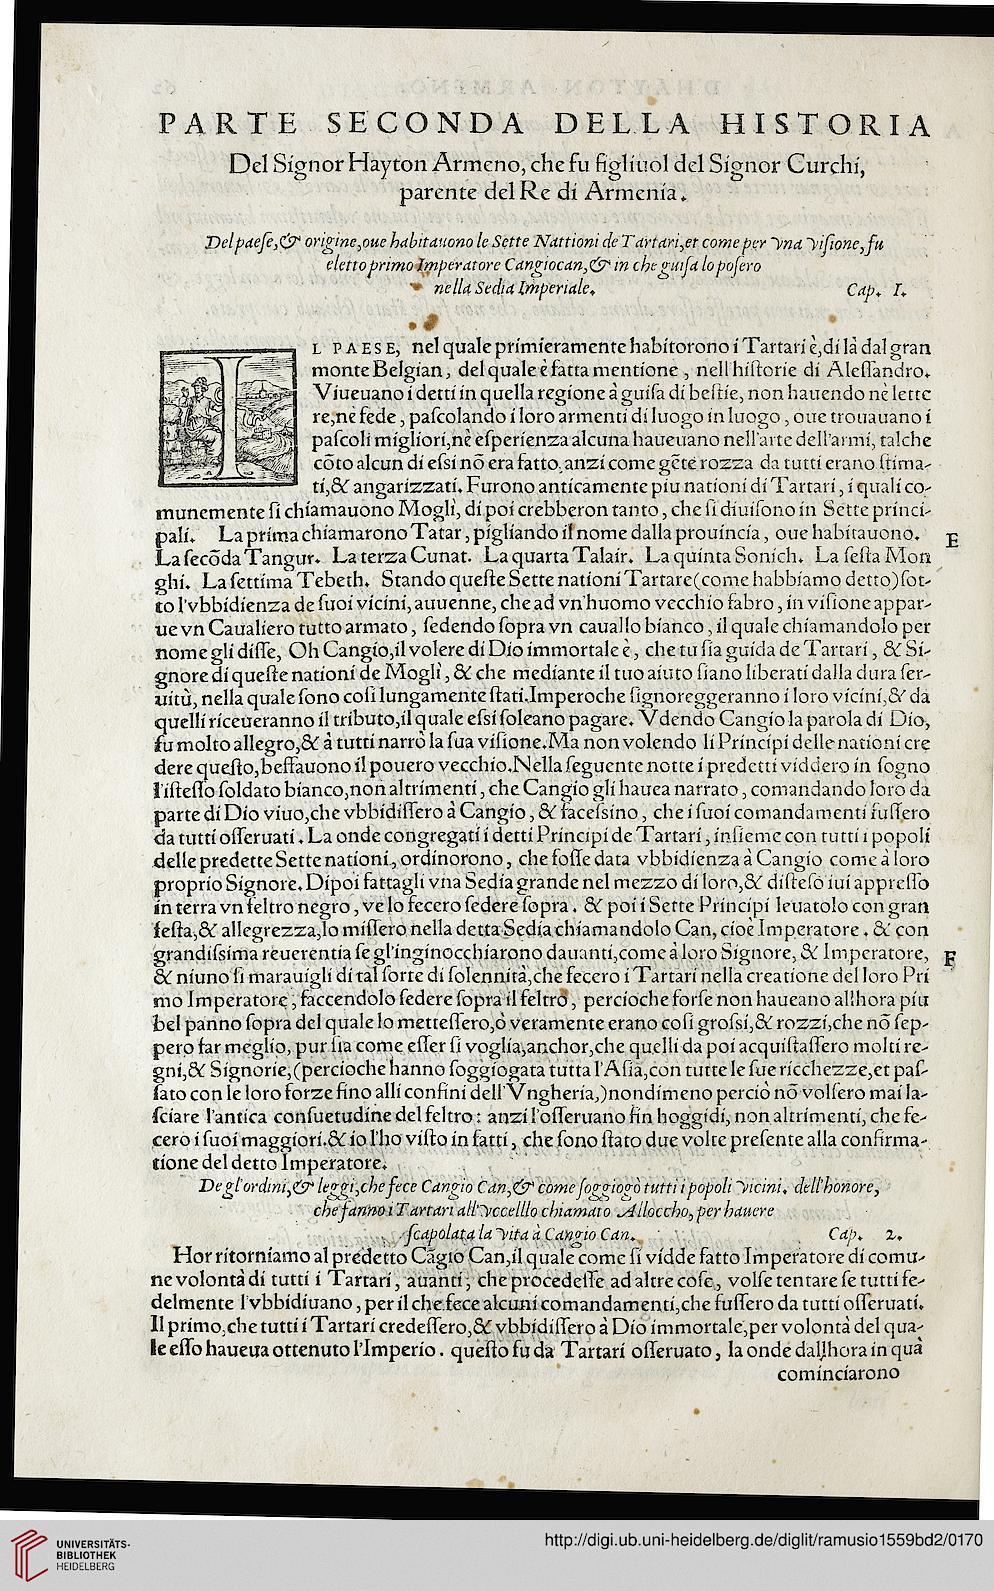 PARTE SECONDA DELLA HISTORIA
Del Signor Hayton Armeno, che fu figliuol del Signor Curchi,
parente del Re di Armenia.
Del paeſe,& origine,oue habitauono le Sette Nattioni de Tartari,et come per vna viſione,fu
eletto primo Imperatore Cangiocan,& in che guiſa lo poſero
nella Sedia Imperiale. Cap. I.
IL PAESE, nel quale primieramente habitorono i Tartari è,di là dal gran
monte Belgian, del quale è fatta mentione, nell'hiſtorie di Aleſſandro.
Viueuano i detti in quella regione à guiſa di beſtie, non hauendo nè lette
re,nè fede, paſcolando i loro armenti di luogo in luogo, oue trouauano i
paſcoli migliori,nè eſperienza alcuna haueuano nell'arte dell'armi, talche
cõto alcun di eſsi nõ era fatto, anzi come gẽte rozza da tutti erano ſtima-
ti,& angarizzati. Furono anticamente piu nationi di Tartari, i quali co-
munemente ſi chiamauono Mogli, di poi crebberon tanto, che ſi diuiſono in Sette princi-
pali. La prima chiamarono Tatar, pigliando il nome dalla prouincia, oue habitauono.
E
La ſecõda Tangur. La terza Cunat. La quarta Talair. La quinta Sonich. La ſeſta Mon
ghi. La ſettima Tebeth. Stando queſte Sette nationi Tartare(come habbiamo detto)ſot-
to l'vbbidienza de ſuoi vicini, auuenne, che ad vn'huomo vecchio fabro, in viſione appar-
ue vn Caualiero tutto armato, ſedendo ſopra vn cauallo bianco, il quale chiamandolo per
nome gli diſſe, Oh Cangio,il volere di Dio immortale è, che tu ſia guida de Tartari, & Si-
gnore di queſte nationi de Mogli, & che mediante il tuo aiuto ſiano liberati dalla dura ſer-
uitù, nella quale ſono coſi lungamente ſtati.Imperoche ſignoreggeranno i loro vicini,& da
quelli riceueranno il tributo,il quale eſsi ſoleano pagare. Vdendo Cangio la parola di Dio,
fu molto allegro,& à tutti narrò la ſua viſione.Ma non volendo li Principi delle nationi cre
dere queſto,beffauono il pouero vecchio.Nella ſeguente notte i predetti viddero in ſogno
l'iſteſſo ſoldato bianco,non altrimenti, che Cangio gli hauea narrato, comandando loro da
parte di Dio viuo,che vbbidiſſero à Cangio, & faceſsino, che i ſuoi comandamenti fuſſero
da tutti oſſeruati. La onde congregati i detti Principi de Tartari, inſieme con tutti i popoli
delle predette Sette nationi, ordinorono, che foſſe data vbbidienza à Cangio come à loro
proprio Signore. Dipoi fattagli vna Sedia grande nel mezzo di loro,& diſteſo iui appreſſo
in terra vn feltro negro, ve lo fecero ſedere ſopra. & poi i Sette Principi leuatolo con gran
feſta,& allegrezza,lo miſſero nella detta Sedia chiamandolo Can, cioè Imperatore. & con
grandiſsima reuerentia ſe gl'inginocchiarono dauanti,come à loro Signore, & Imperatore,
F
& niuno ſi marauigli di tal ſorte di ſolennità,che fecero i Tartari nella creatione del loro Pri
mo Imperatore, faccendolo ſedere ſopra il feltro, percioche forſe non haueano allhora piu
bel panno ſopra del quale lo metteſſero,ò veramente erano coſi groſsi,& rozzi,che nõ ſep-
pero far meglio, pur ſia come eſſer ſi voglia,anchor,che quelli da poi acquiſtaſſero molti re-
gni,& Signorie,(percioche hanno ſoggiogata tutta l'Aſia,con tutte le ſue ricchezze,et paſ-
ſato con le loro forze fino alli confini dell'Vngheria,)nondimeno perciò nõ volſero mai la-
ſciare l'antica conſuetudine del feltro: anzi l'oſſeruano fin hoggidi, non altrimenti, che fe-
cero i ſuoi maggiori.& io l'ho viſto in fatti, che ſono ſtato due volte preſente alla confirma-
tione del detto Imperatore.
De gl'ordini,& leggi,che fece Cangio Can,& come ſoggiogò tutti i popoli vicini. dell'honore,
che fanno i Tartari all'vccelllo chiamato Alloccho, per hauere
ſcapolata la vita à Cangio Can. Cap. 2.
Hor ritorniamo al predetto Cãgio Can,il quale come ſi vidde fatto Imperatore di comu-
ne volontà di tutti i Tartari, auanti, che procedeſſe ad altre coſe, volſe tentare ſe tutti fe-
delmente l'vbbidiuano, per il che fece alcuni comandamenti,che fuſſero da tutti oſſeruati.
Il primo,che tutti i Tartari credeſſero,& vbbidiſſero à Dio immortale,per volontà del qua-
le eſſo haueua ottenuto l'Imperio. queſto fu da Tartari oſſeruato, la onde dallhora in quà
cominciarono
UNIVERSITÄTS-
BIBLIOTHEK
HEIDELBERG
http://digi.ub.uni-heidelberg.de/diglit/ramusio1559bd2/0170